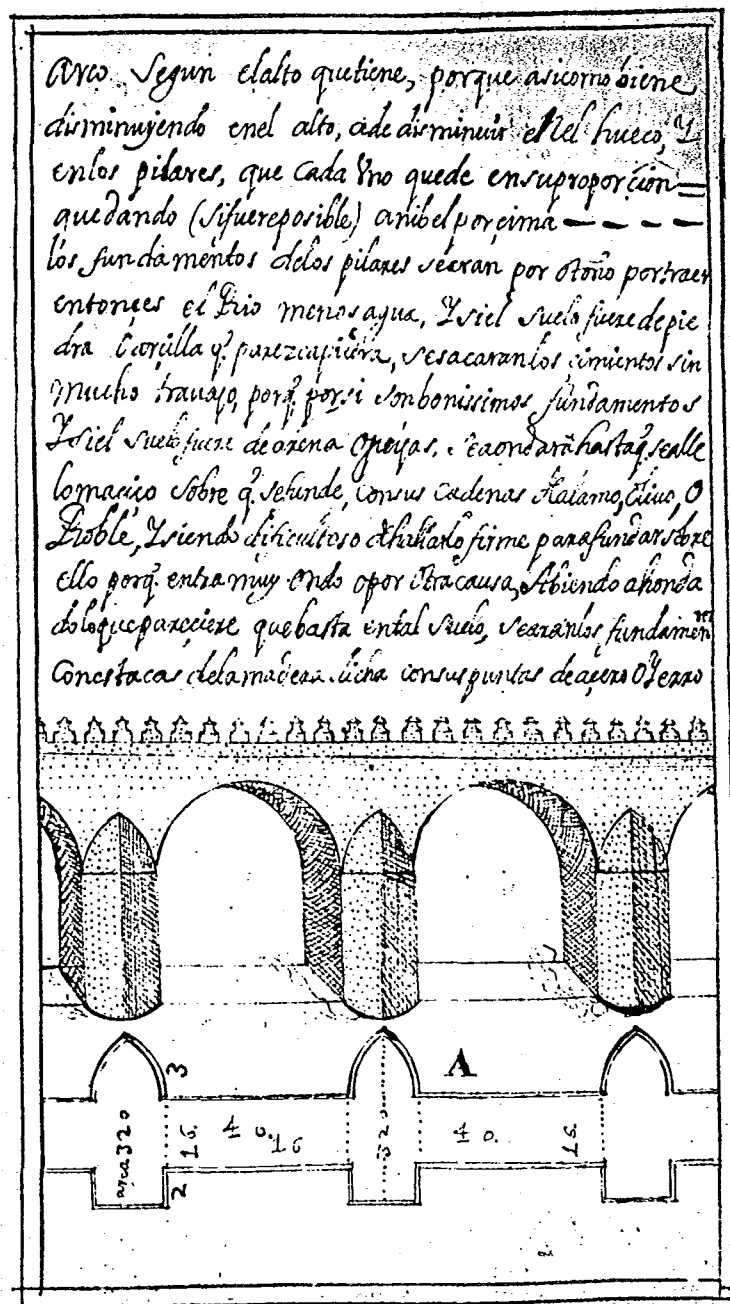 Arco Segun elalto quetiene, porque asicomo biene
disminuyendo enel alto, ade disminuir enel hueco, Y
enlos pilares, que Cada Vno quede ensuproporçion
quedando (sifuereposible) anibel porçima
los fundamentos delos pilares searan por otoño portraer
entonçes el Rio menos agua, Ysiel suelo fuere de pie
dra Carçilla q. parezcapiedra, sesacaran los cimientos sin
mucho travajo, porq. porsi sonbonissimos fundamentos
Ysiel suelo fuere de arena Oguijas, seaondara hastaq. sealle
lomaçiço sobre q. sefunde, consus Cadenas Halamo, Olivo, O
Roble, Ysiendo dificultoso firme parafundarsobre
ello porq. entra muy Ondo opor Otracausa, Abiendo ahonda
doloquepareçiere quebasta ental suelo, searanlos fundamen
Conestacas delamadera dicha consuspuntas deaçero OYerro
A
3
area 320
16.
40.
16
320
40.
16.
2